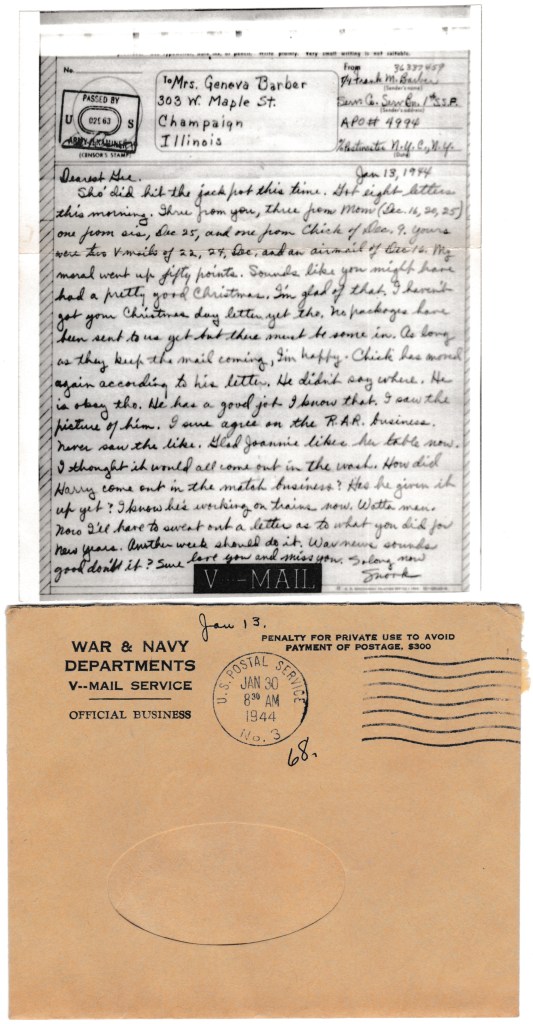 No.
To Mrs. Geneva Barber
303 W. Maple St.
Champaign
Illinois
PASSED BY
U S
ARMY EXAMINER
(CENSOR'S STAMP)
From
T/4 Frank M. Barber
(Sender's name)
Serv. Co. Serv. Bn. 1st S.S.F.
(Sender's address)
APO# 4994
Postmaster N.Y.C., N.Y.
(Date)
Jan 13, 1944
Dearest Gee.
Sho' did hit the jack pot this time. Got eight letters
this morning. Three from you, three from Mom (Dec. 16, 20, 25)
one from sis, Dec 25, and one from Chick of Dec. 9. Yours
were two V mails of 22, 24, Dec. and an airmail of Dec 12. My
moral went up fifty points. Sounds like you might have
had a pretty good Christmas. I'm glad of that. I haven't
got your Christmas day letter yet tho. No packages have
been sent to us yet but there must be some in. As long
as they keep the mail coming, I'm happy. Chick has moved
again according to his letter. He didn't say where. He
is okay tho. He has a good job I know that. I saw the
picture of him. I sure agree on the R.A.R. business.
Never saw the like. Glad Joannie likes her table now.
I thought it would all come out in the wash. How did
Harry come out in the match business? Has he given it
up yet? I know he's working on trains now. Watta man.
Now I'll have to sweat out a letter as to what you did for
New years. Another week should do it. War news sounds
good don't it? Sure love you and miss you. So long now
Snork
V--MAIL
Jan 13.
WAR & NAVY
DEPARTMENTS
V--MAIL SERVICE
OFFICIAL BUSINESS
PENALTY FOR PRIVATE USE TO AVOID
PAYMENT OF POSTAGE, $300
U.S. POSTAL SERVICE
JAN 30
8 30 AM
1944
No. 3
68.